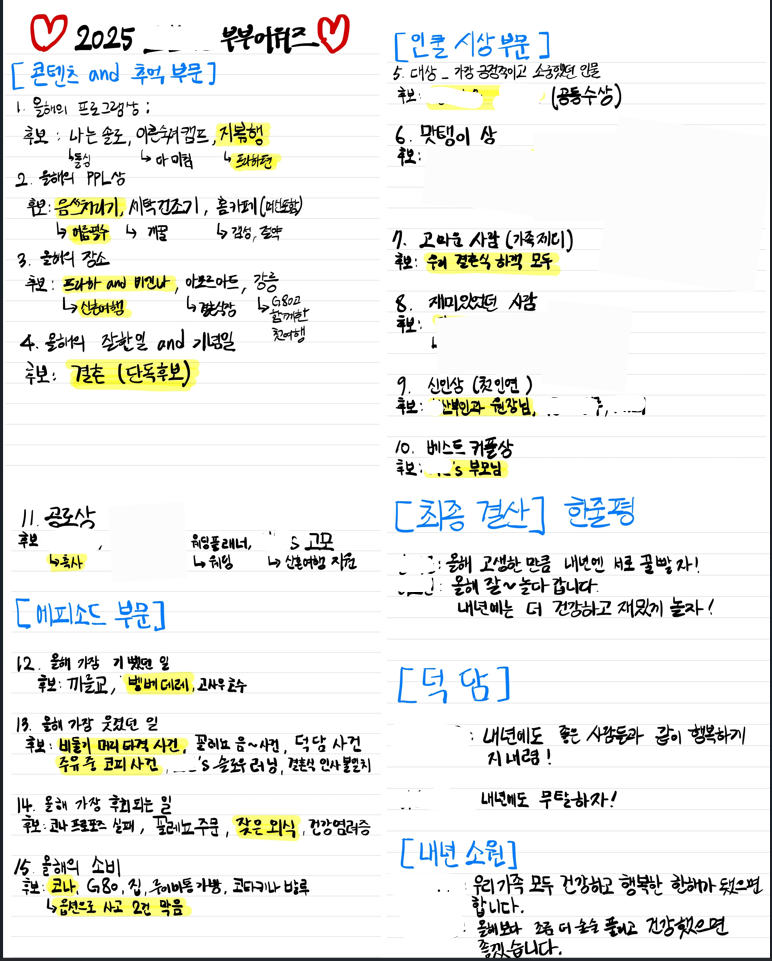 2025 부부어워즈
[콘텐츠 and 추억 부문]
1. 올해의 프로그램상 :
후보 : 나는 솔로, 이혼숙려캠프, 지볶행
↳돌싱 ↳아 미침 ↳프라하편
2. 올해의 PPL상
후보: 음쓰처리기, 세탁건조기, 홈카페(머신포함)
↳여름필수 ↳개꿀 ↳감성, 절약
3. 올해의 장소
후보: 프라하 and 비엔나, 아모르아트, 강릉
↳신혼여행 ↳결혼식장 ↳G80과
함께한
첫여행
4. 올해의 잘한일 and 기념일
후보: 결혼 (단독후보)
11. 공로상
후보 , 웨딩플래너, s 고모
↳축사 ↳웨딩 ↳신혼여행 지원
[에피소드 부문]
12. 올해 가장 기뻤던 일
후보: 까를교, 벨베데레, 고사우호수
13. 올해 가장 웃겼던 일
후보: 비둘기 머리 타격 사건, 꼴레뇨 음~사건, 덕담 사건
주유 중 코피 사건, 's 슬로우 러닝, 결혼식 인사 불일치
14. 올해 가장 후회되는 일
후보: 코나 프로포즈 실패, 꼴레뇨 주문, 잦은 외식, 건강염려증
15. 올해의 소비
후보: 코나, G80, 집, 루이비통 가방, 코타키나발루
↳옵션으로 사고 2건 막음
[인물 시상 부문]
5. 대상 _ 가장 긍정적이고 소중했던 인물
후보: (공동수상)
6. 맛탱이 상
후보:
7. 고마운 사람 (가족제외)
후보: 우리 결혼식 하객 모두
8. 재미있었던 사람
후보:
9. 신인상 (첫인연)
후보: 산부인과 원장님,
10. 베스트 커플상
후보: 's 부모님
[최종 결산] 한줄평
: 올해 고생한 만큼 내년엔 서로 꿀빨자!
: 올해 잘~놀다 갑니다.
내년에는 더 건강하고 재밌게 놀자!
[덕담]
: 내년에도 좋은 사람들과 같이 행복하게
지내렴!
내년에도 무탈하자!
[내년 소원]
: 우리가족 모두 건강하고 행복한 한해가 됐으면
합니다.
: 올해보다 조금 더 술술 풀리고 건강했으면
좋겠습니다.